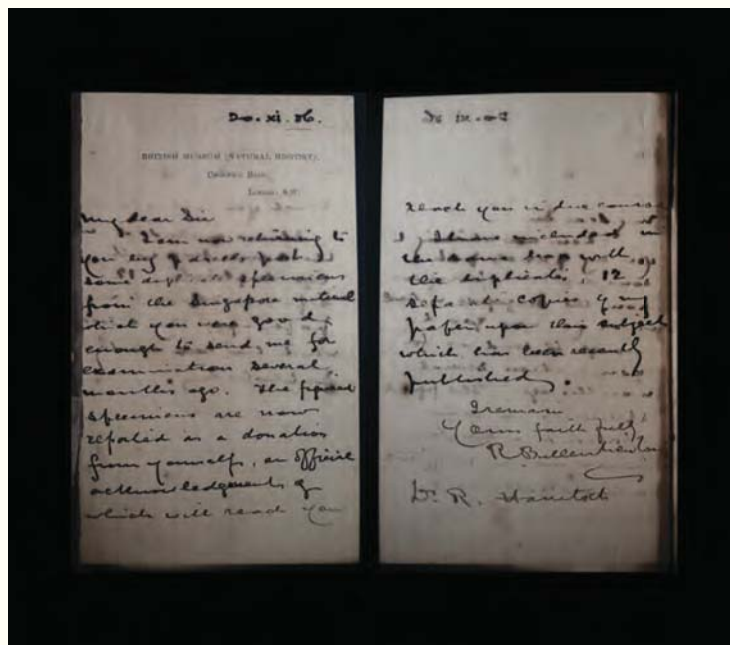 20.xi.06.
BRITISH MUSEUM (NATURAL HISTORY),
CROMWELL ROAD,
LONDON: S.W.
My dear Sir
I am now returning to
you by parcels post
some duplicate specimens
from the Singapore material
which you were good
enough to send me for
examination several
months ago. The figured
specimens are now
reported as a donation
from yourself, an official
acknowledgement of
which will reach you
reach you in due course
I have included in
the same box with
the duplicates, 12
separate copies of my
paper upon this subject
which has been recently
published.
I remain
Yours faithfully
R. Bullen Newton
Dr. R. Hanitsch